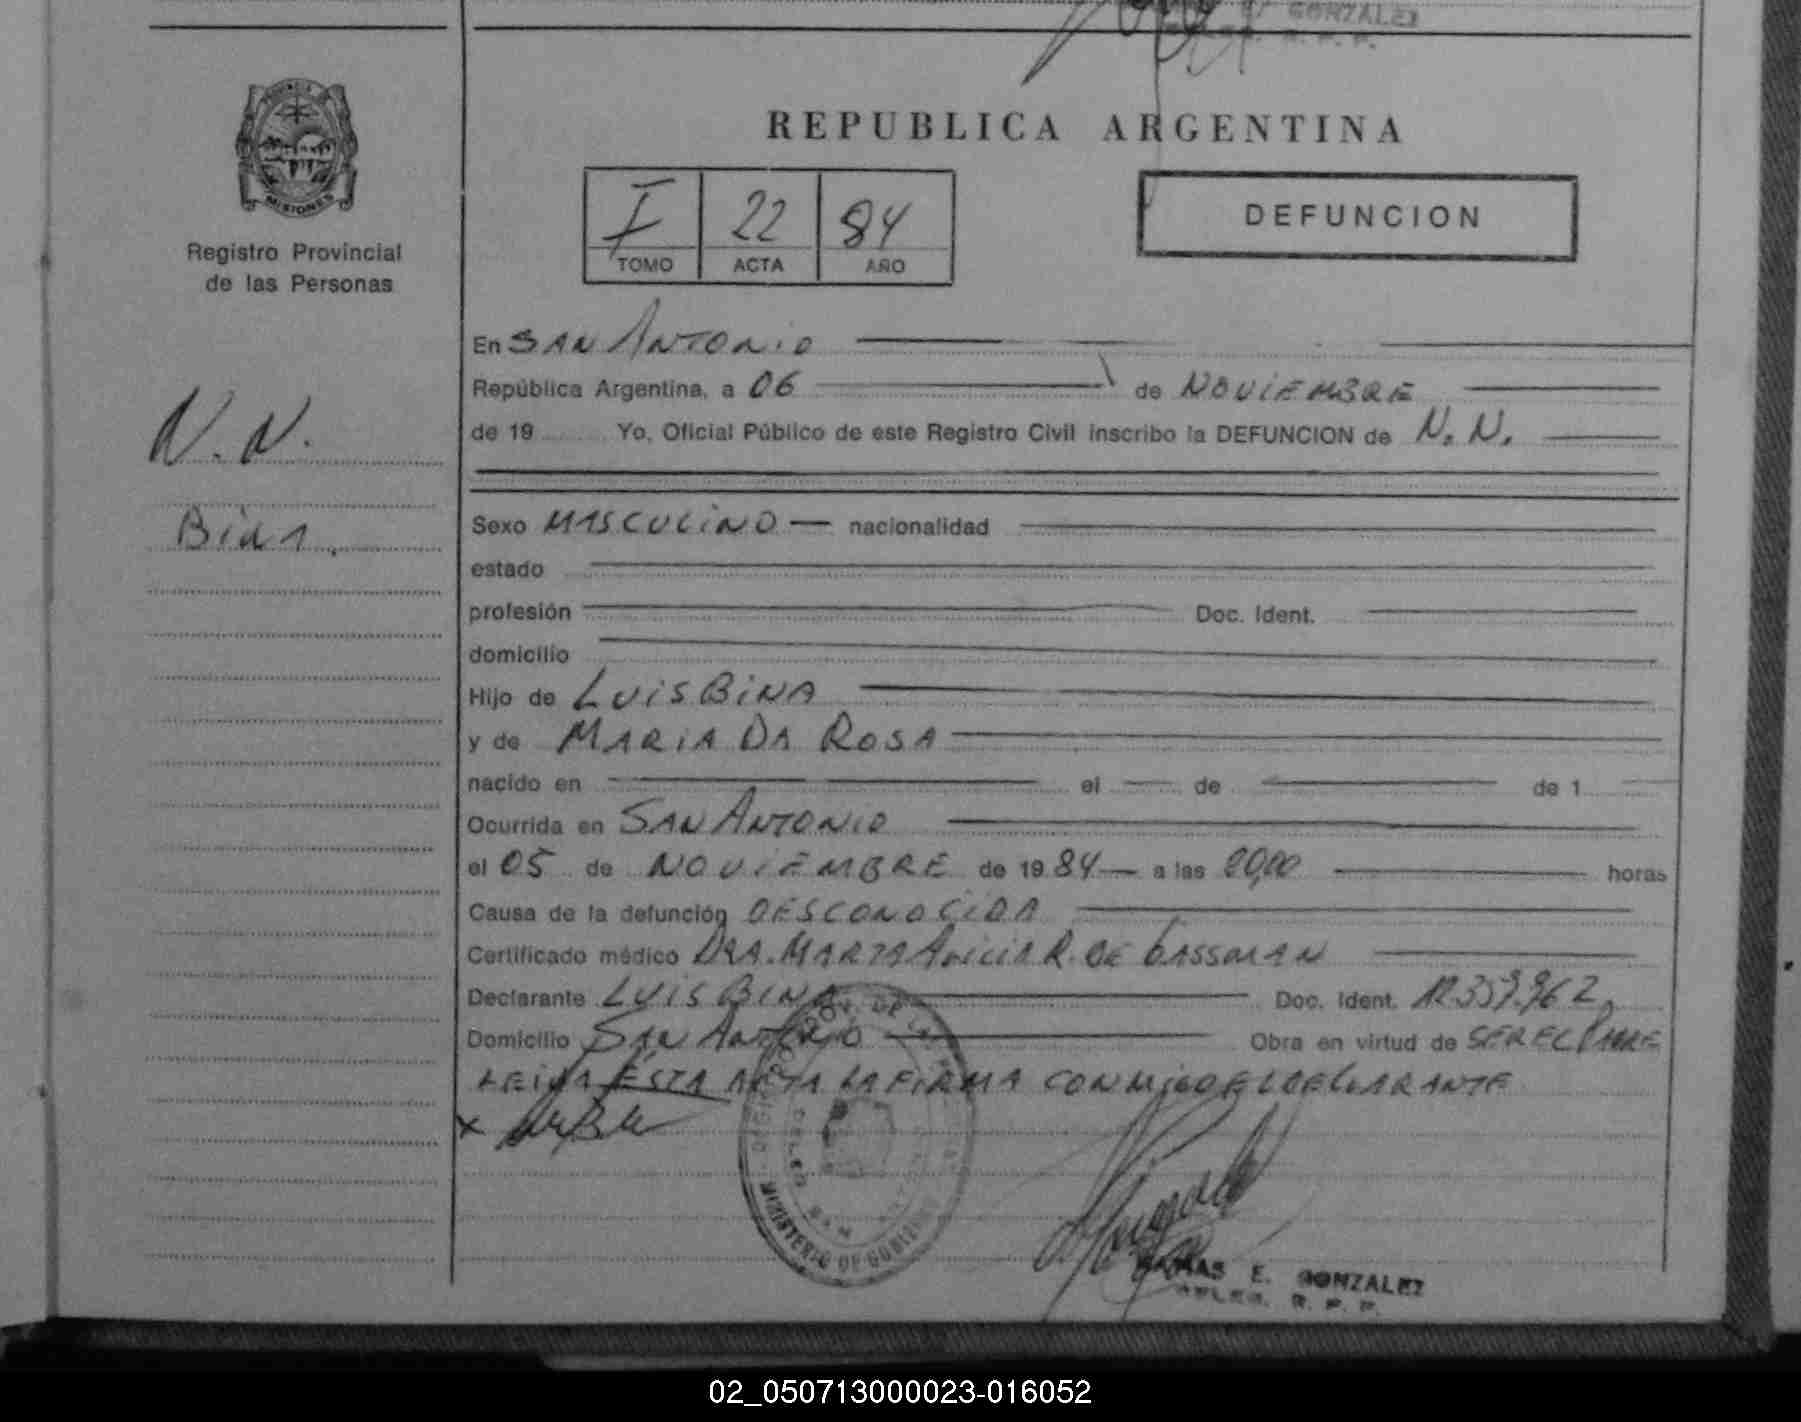 GONZALEZ
R. P. P.
PROVINCIA DE
MISIONES
Registro Provincial
de las Personas
REPUBLICA ARGENTINA
I 22 84
TOMO ACTA AÑO
DEFUNCION
En SAN ANTONIO
República Argentina, a 06 de NOVIEMBRE
de 19 Yo, Oficial Público de este Registro Civil inscribo la DEFUNCION de N. N.
N. N.
Sexo MASCULINO nacionalidad
estado
profesión Doc. Ident.
domicilio
Hijo de LUIS BINA
y de MARIA DA ROSA
nacido en el de de 1
Ocurrida en SAN ANTONIO
el 05 de NOVIEMBRE de 1984 a las horas
Causa de la defunción DESCONOCIDA
Certificado médico DRA. MARTA ALICIA R. DE
Declarante LUIS BINA Doc. Ident.
Domicilio SAN ANTONIO Obra en virtud de SER EL PADRE
LEIDA ESTA ACTA LA FIRMA CONMIGO EL DECLARANTE
x
MINISTERIO DE GOBIERNO
E. GONZALEZ
R. P. P.
02_050713000023-016052